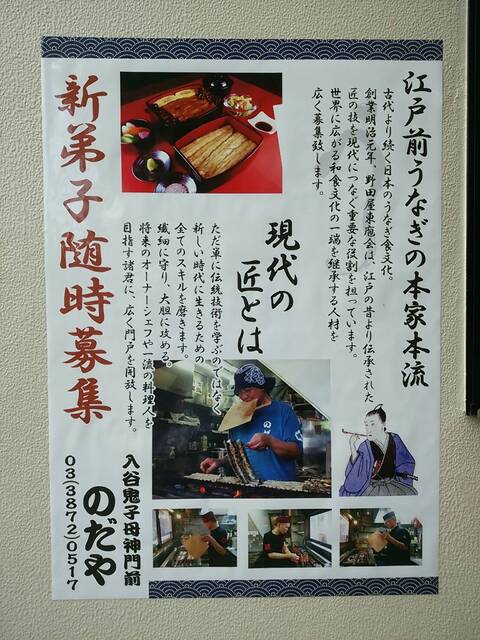 江戸前うなぎの本家本流
古代より続く日本のうなぎ食文化。
創業明治元年、野田屋東庖会は、江戸の昔より伝承された
匠の技を現代につなぐ重要な役割を担っています。
世界に広がる和食文化の一端を継承する人材を
広く募集致します。
現代の
匠とは
ただ単に伝統技術を学ぶのではなく
新しい時代に生きるための
全てのスキルを磨きます。
繊細に守り、大胆に攻める。
将来のオーナーシェフや一流の料理人を
目指す諸君に、広く門戸を開放します。
新弟子随時募集
入谷鬼子母神門前
のだや
03(3872)0517